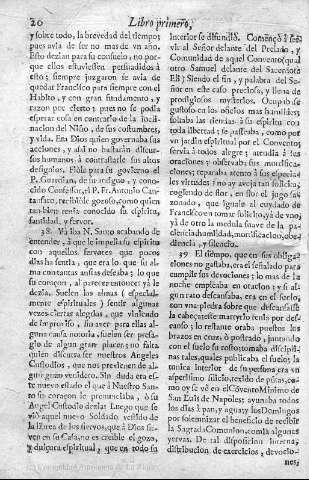 20 Libro primero,
y sobre todo, la brevedad del tiempo;
pues avia de ser no mas de vn año.
Esto dezian para su consuelo, no por-
que ellos estuviessen persuadidos à
esto; siempre juzgaron se avia de
quedar Francisco para siempre con el
Habito, y con gran fundamento, y
razon por cierto; pues no se podia
esperar cosa en contrario de la
nacion del Niño, de sus costumbres,
y vida. Era Dios quien governaba sus
acciones, y assi no bastarian discur-
sos humanos à contrastarle sus altos
designios. Hizo para su govierno el
P. Guardian, de su antiguo, y cono-
cido Confessor, el P. Fr. Antonio
recibiòle gozoso, como quien
tan bien tenia conocido su espiritu,
santidad, y fervor.
38. Yà iba N. Santo acabando de
entender, à que le impelia su espiritu
con aquellos fervores que pocos
dias ha sentia, que era lo que su al-
ma con tantas ansias deseaba; lo que
su coraçon, al parecer entonces yà le
dezia. Suelen las almas (especial-
mente espirituales) sentir algunas
vezes ciertas alegrias, que viniendo
de improviso, sin aver para ellas al-
guna causa notoria, suelen ser presa-
gio de algun gran placer; no falta
quien discurra ser nuestros Angeles
Custodios, que nos previenen de al-
gun gozo venidero. Sin duda era es-
te nuevo estado el que à Nuestro San-
to su coraçon le pronunciaba, ò su
Angel Custodio dezia: Luego que se
viò aquel nuevo Soldado vestido de
la librea de los siervos, que à Dios sir-
ven en su Casa, no es creible el gozo,
y dulçura espiritual, que en todo su
interior se difundiò. Començò à ser-
vir al Señor delante del Prelado, y
Comunidad de aquel Convento (qual
otro Samuel delante del Sacerdote
Eli) Siendo el fin, y palabra del Se-
ñor en este caso preciosa, y llena de
prodigiosos mysterios. Ocupabase
gustoso en los oficios mas humildes;
soltaba las riendas à su espiritu con
toda libertad; se passeaba, como por
vn jardin espiritual por el Convento;
servia à todos alegre; assistia à las
oraciones y observaba sus mortifica-
ciones; reparaba atento à sus especia-
les virtudes; no ay avejita tan solicita,
cogiendo de flor, en flor el jugo sa-
zonado, que iguale al cuydado de
Francisco en tomar solicito, yà de vno,
yà de otro la medula suave de la pa-
ciencia, humildad, mortificacion, obe-
diencia, y silencio.
39. El tiempo, que en sus obliga-
ciones no gastaba, era el señalado para
cumplir sus devociones; lo mas de la
noche empleaba en oracion; y si al-
gun rato descansaba, era en el suelo,
con vna piedra sobre que descansasse
la cabeça: este martyrio tenia por des-
canso; lo restante oraba puestos los
brazos en cruz, ò postrado, juntando
con el suelo su rostro; tomaba discipli-
nas tales, quales publicaba el suelo; la
tunica interior de su persona era vn
asperissimo silicio, texido de puas, co-
mo oy se vè en el Convento Minimo de
San Luis de Napoles; ayunaba todos
los dias à pan, y agua; y los Domingos
por solemnizar el beneficio de recibir
la Sagrada Comunion, comia algunas
yervas. De tal disposicion interna,
distribucion de exercicios, devocio-
nes,